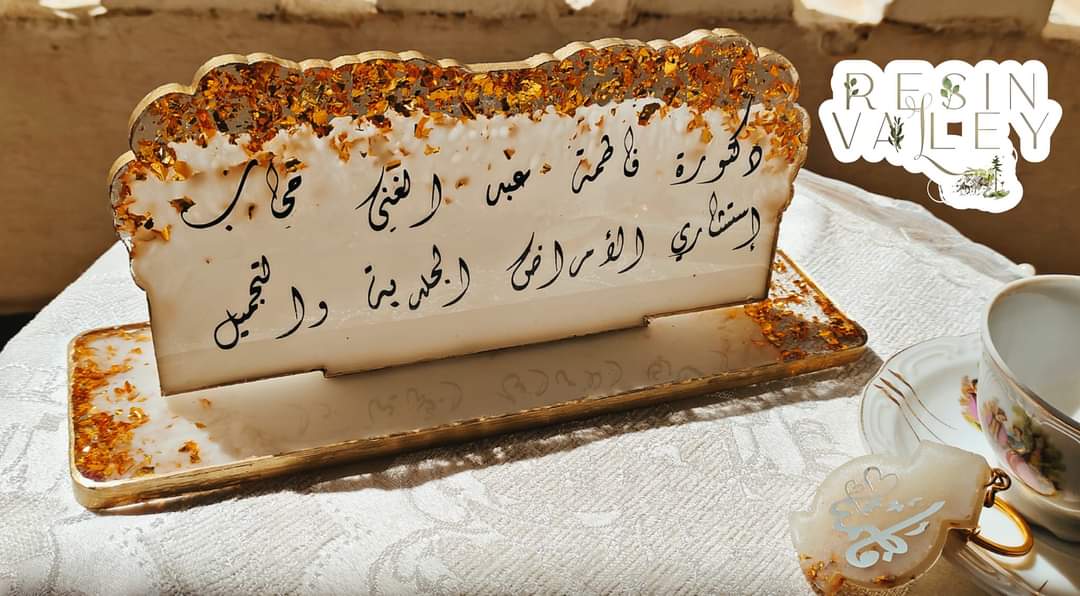 دكتورة فاطمة عبد الغني حجاب
إستشاري الأمراض الجلدية والتجميل
RESIN
VALLEY